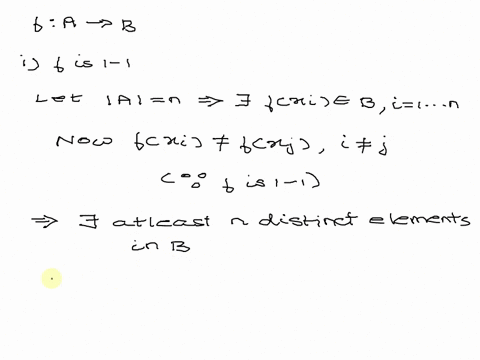 f : A → B
i) f is 1-1
Let |A| = n ⇒ ∃ f(xi) ∈ B, i=1...n
Now f(xi) ≠ f(xj), i ≠ j
(∵ f is 1-1)
⇒ ∃ atleast n distinct elements
in B